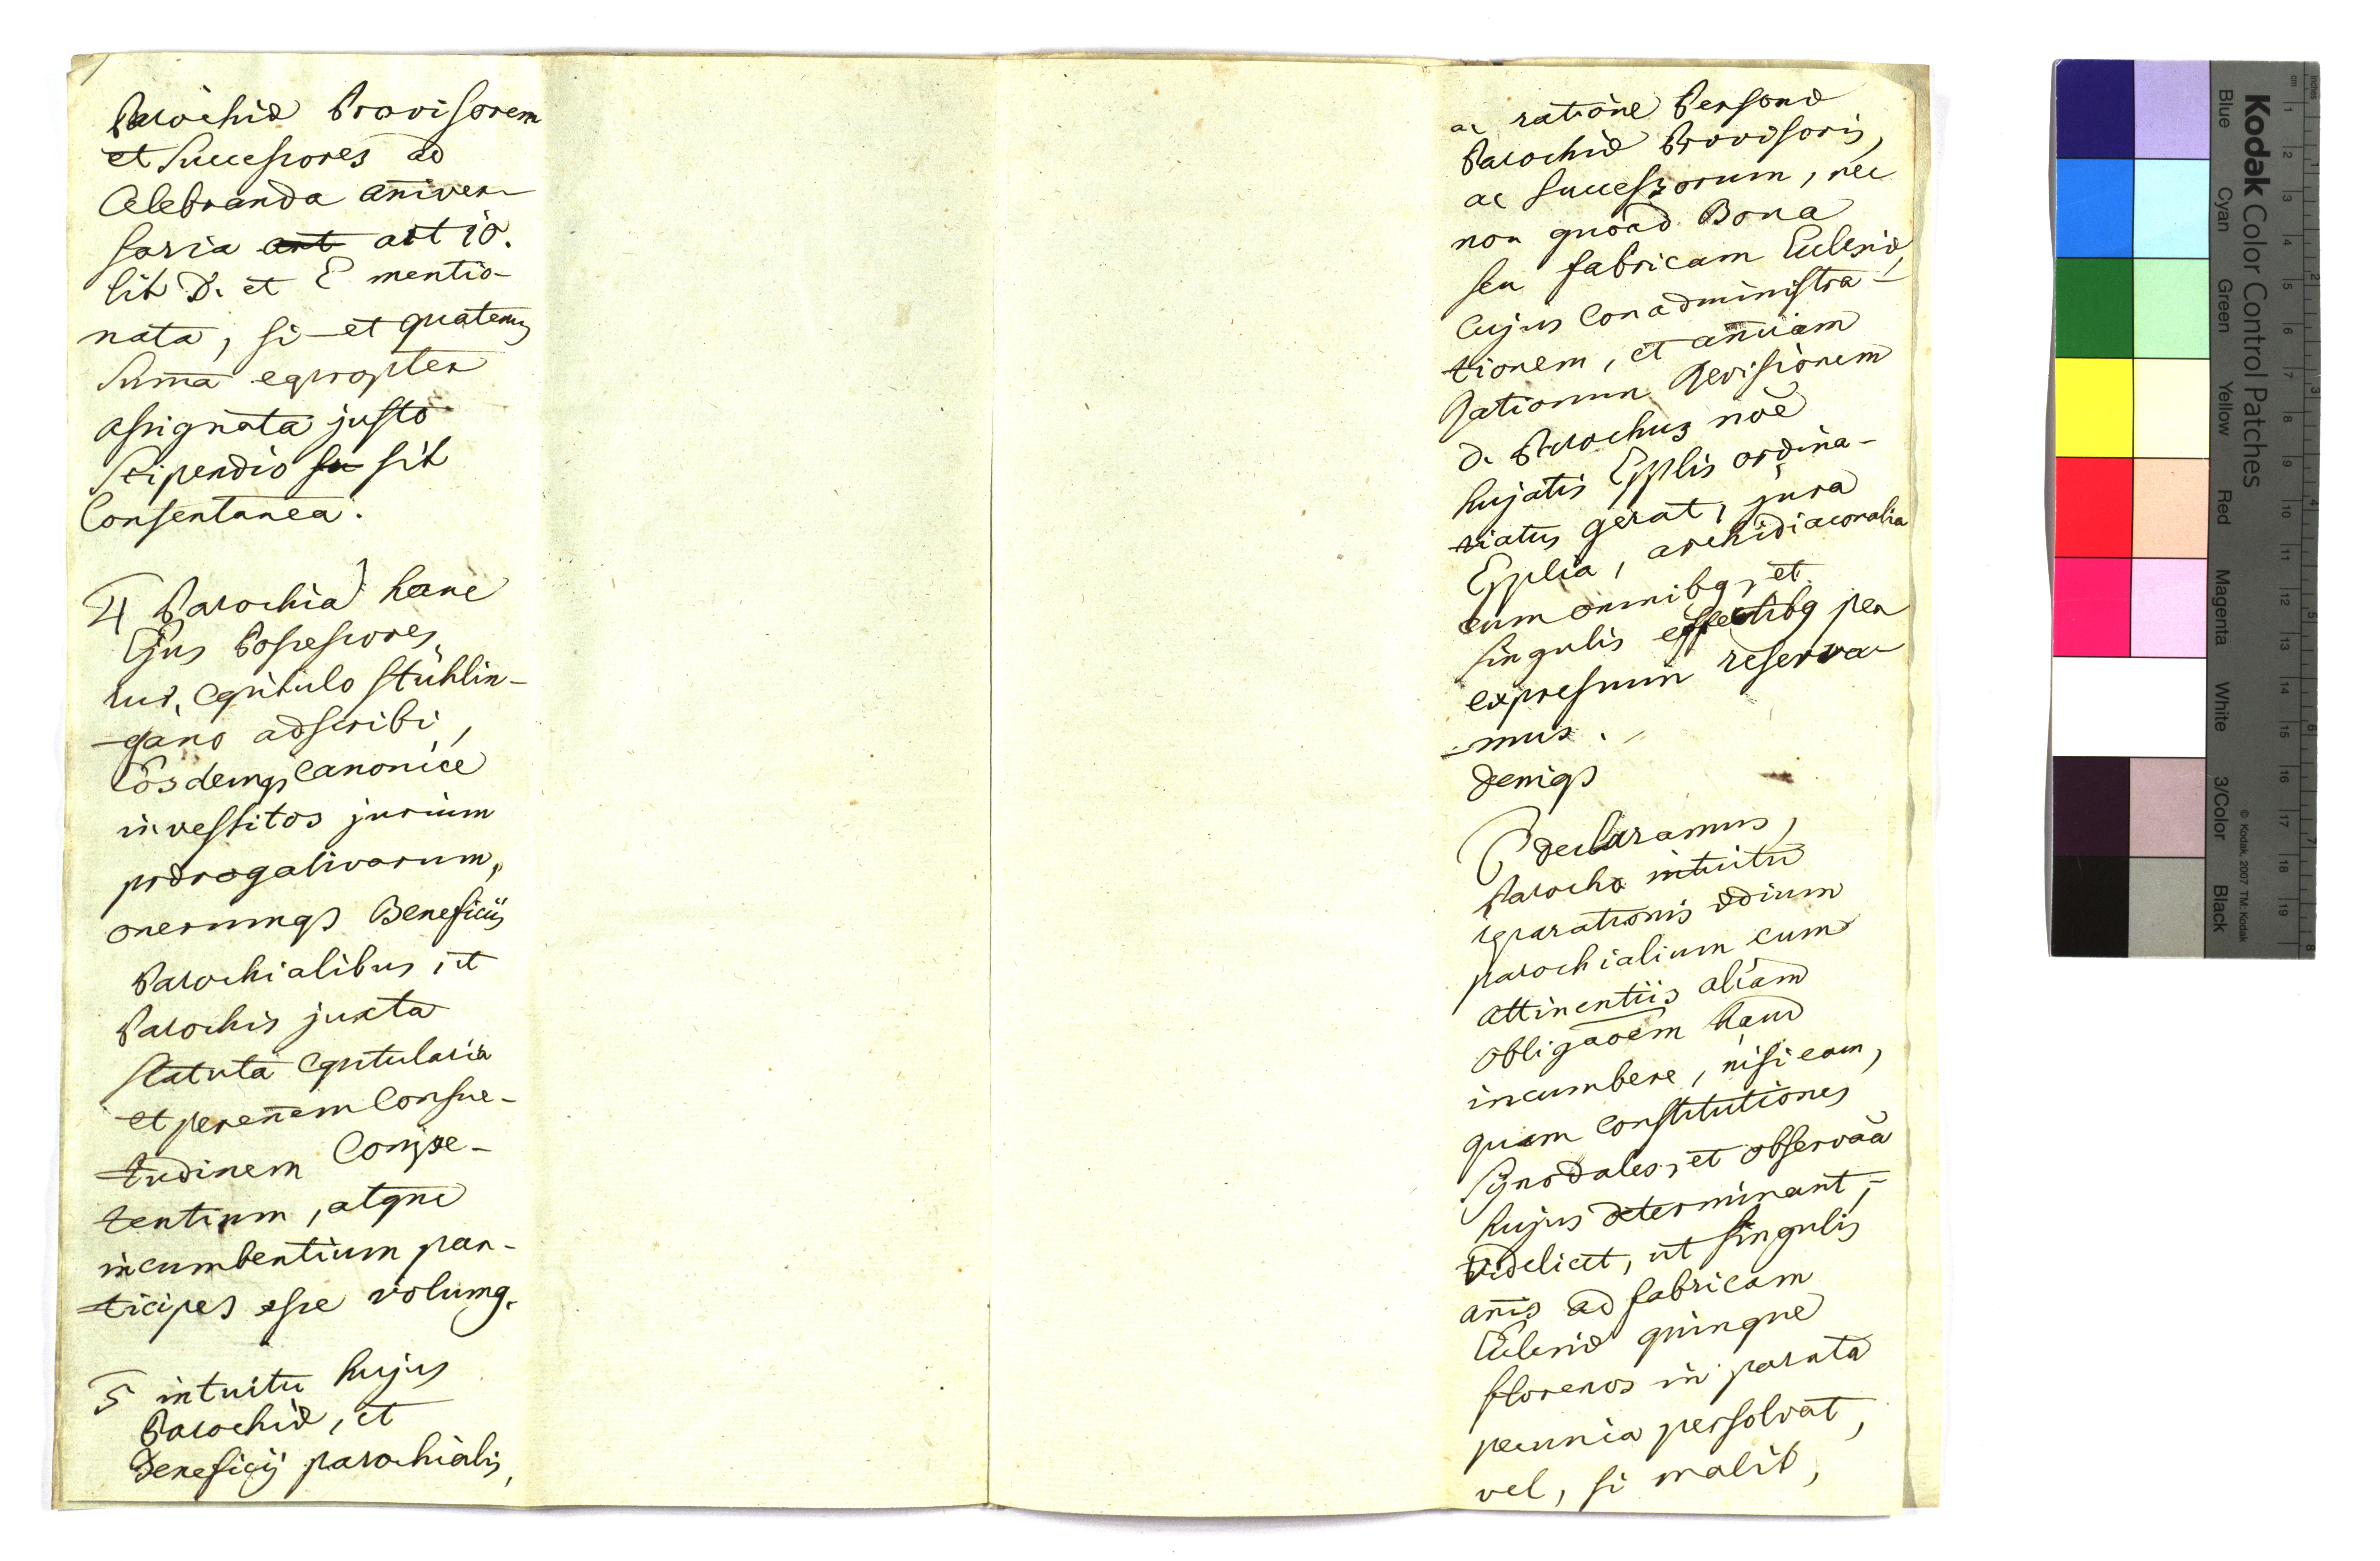 Parochiæ Provisorem
et Successores ad
Celebranda aniver-
saria art art 10.
lit D. et E mentio-
nata, si et quatenus
Suma eapropter
assignata justo
Stipendio su sit
Consentanea.
4 Parochiæ hanc
Ejus Possessores,
rur, Capitulo Stühlin-
-gano adscribi,
Eosdemqs Canonice
investitos jurium
prærogativarum,
onerumqs Beneficiis
Parochialibus, et
Parochis juxta
Statuta Capitularia
et perenem Consue-
tudinem Compe-
tentium, atque
incumbentium par-
ticipes esse volumq.
5 intuitu hujus
Parochiæ, et
Beneficij parochialis,
ac ratione Personæ
Parochiæ Provisoris,
ac Successorum, nec
non quoad Bona
seu fabricam Ecclesiæ,
Cujus Conadministra-
tionem, et anuam
Rationum Revisionem
D. Parochus noe
hujatis Epplis ordina-
riatus gerat, jura
Epplia, archidiaconalia
cum omnibq, et
singulis effectibq per
expressum reserva-
-mus.
Deniqs
6 declaramus,
Parocho intuitu
reparationis ædium
parochialium cum
attinentiis aliam
obligaoem haud
incumbere, nisi eam,
quam Constitutiones
Synodales, et observaa
hujus determinant,
videlicet, ut singulis
anis ad fabricam
Ecclesiæ quinque
florenos in parata
pecunia persolvat,
vel, si malit,
Kodak Color Control Patches
Blue
Cyan
Green
Yellow
Red
Magenta
White
3/Color
Black
© Kodak 2007 TM: Kodak
cm
inches
1
2
3
4
5
6
7
8
9
10
11
12
13
14
15
16
17
18
19
1
2
3
4
5
6
7
8